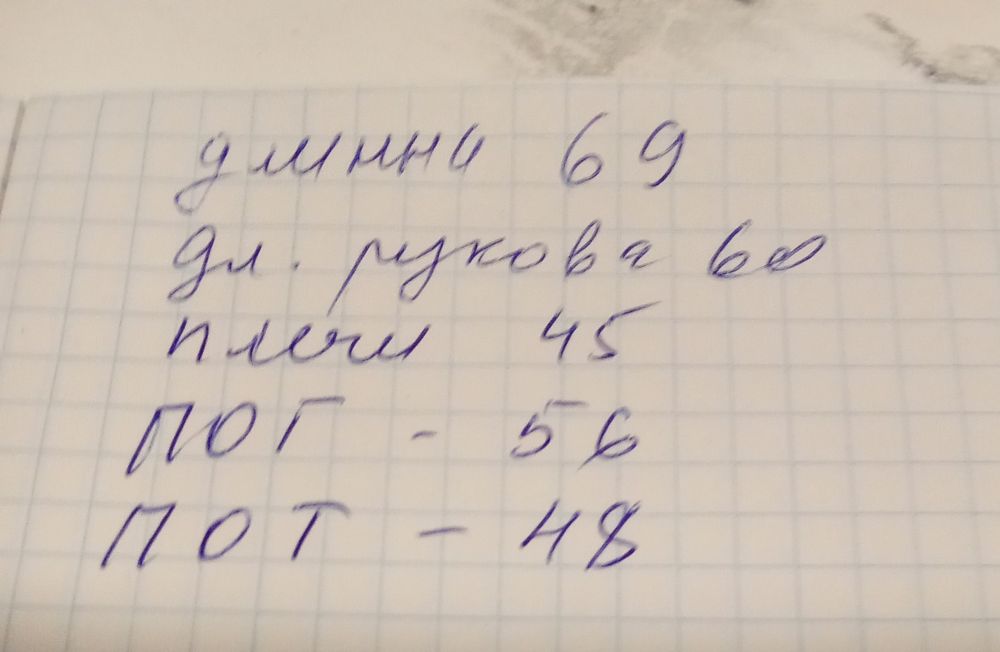 длинна 69
дл. рукова 60
плечи 45
ПОГ - 56
ПОТ - 48